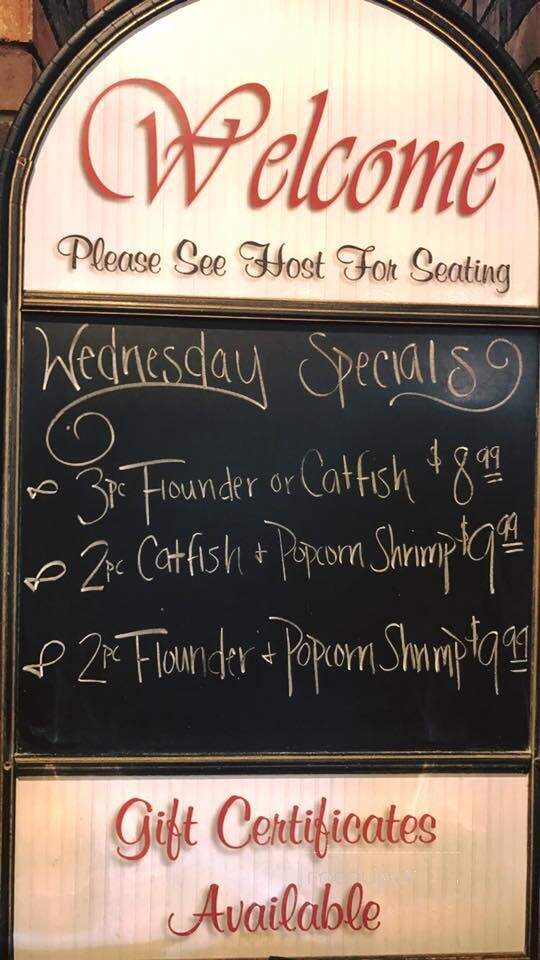 Welcome
Please See Host For Seating
Wednesday Specials
3pc Flounder or Catfish $8.99
2pc Catfish + Popcorn Shrimp $9.99
2pc Flounder + Popcorn Shrimp $9.99
Gift Certificates
Available